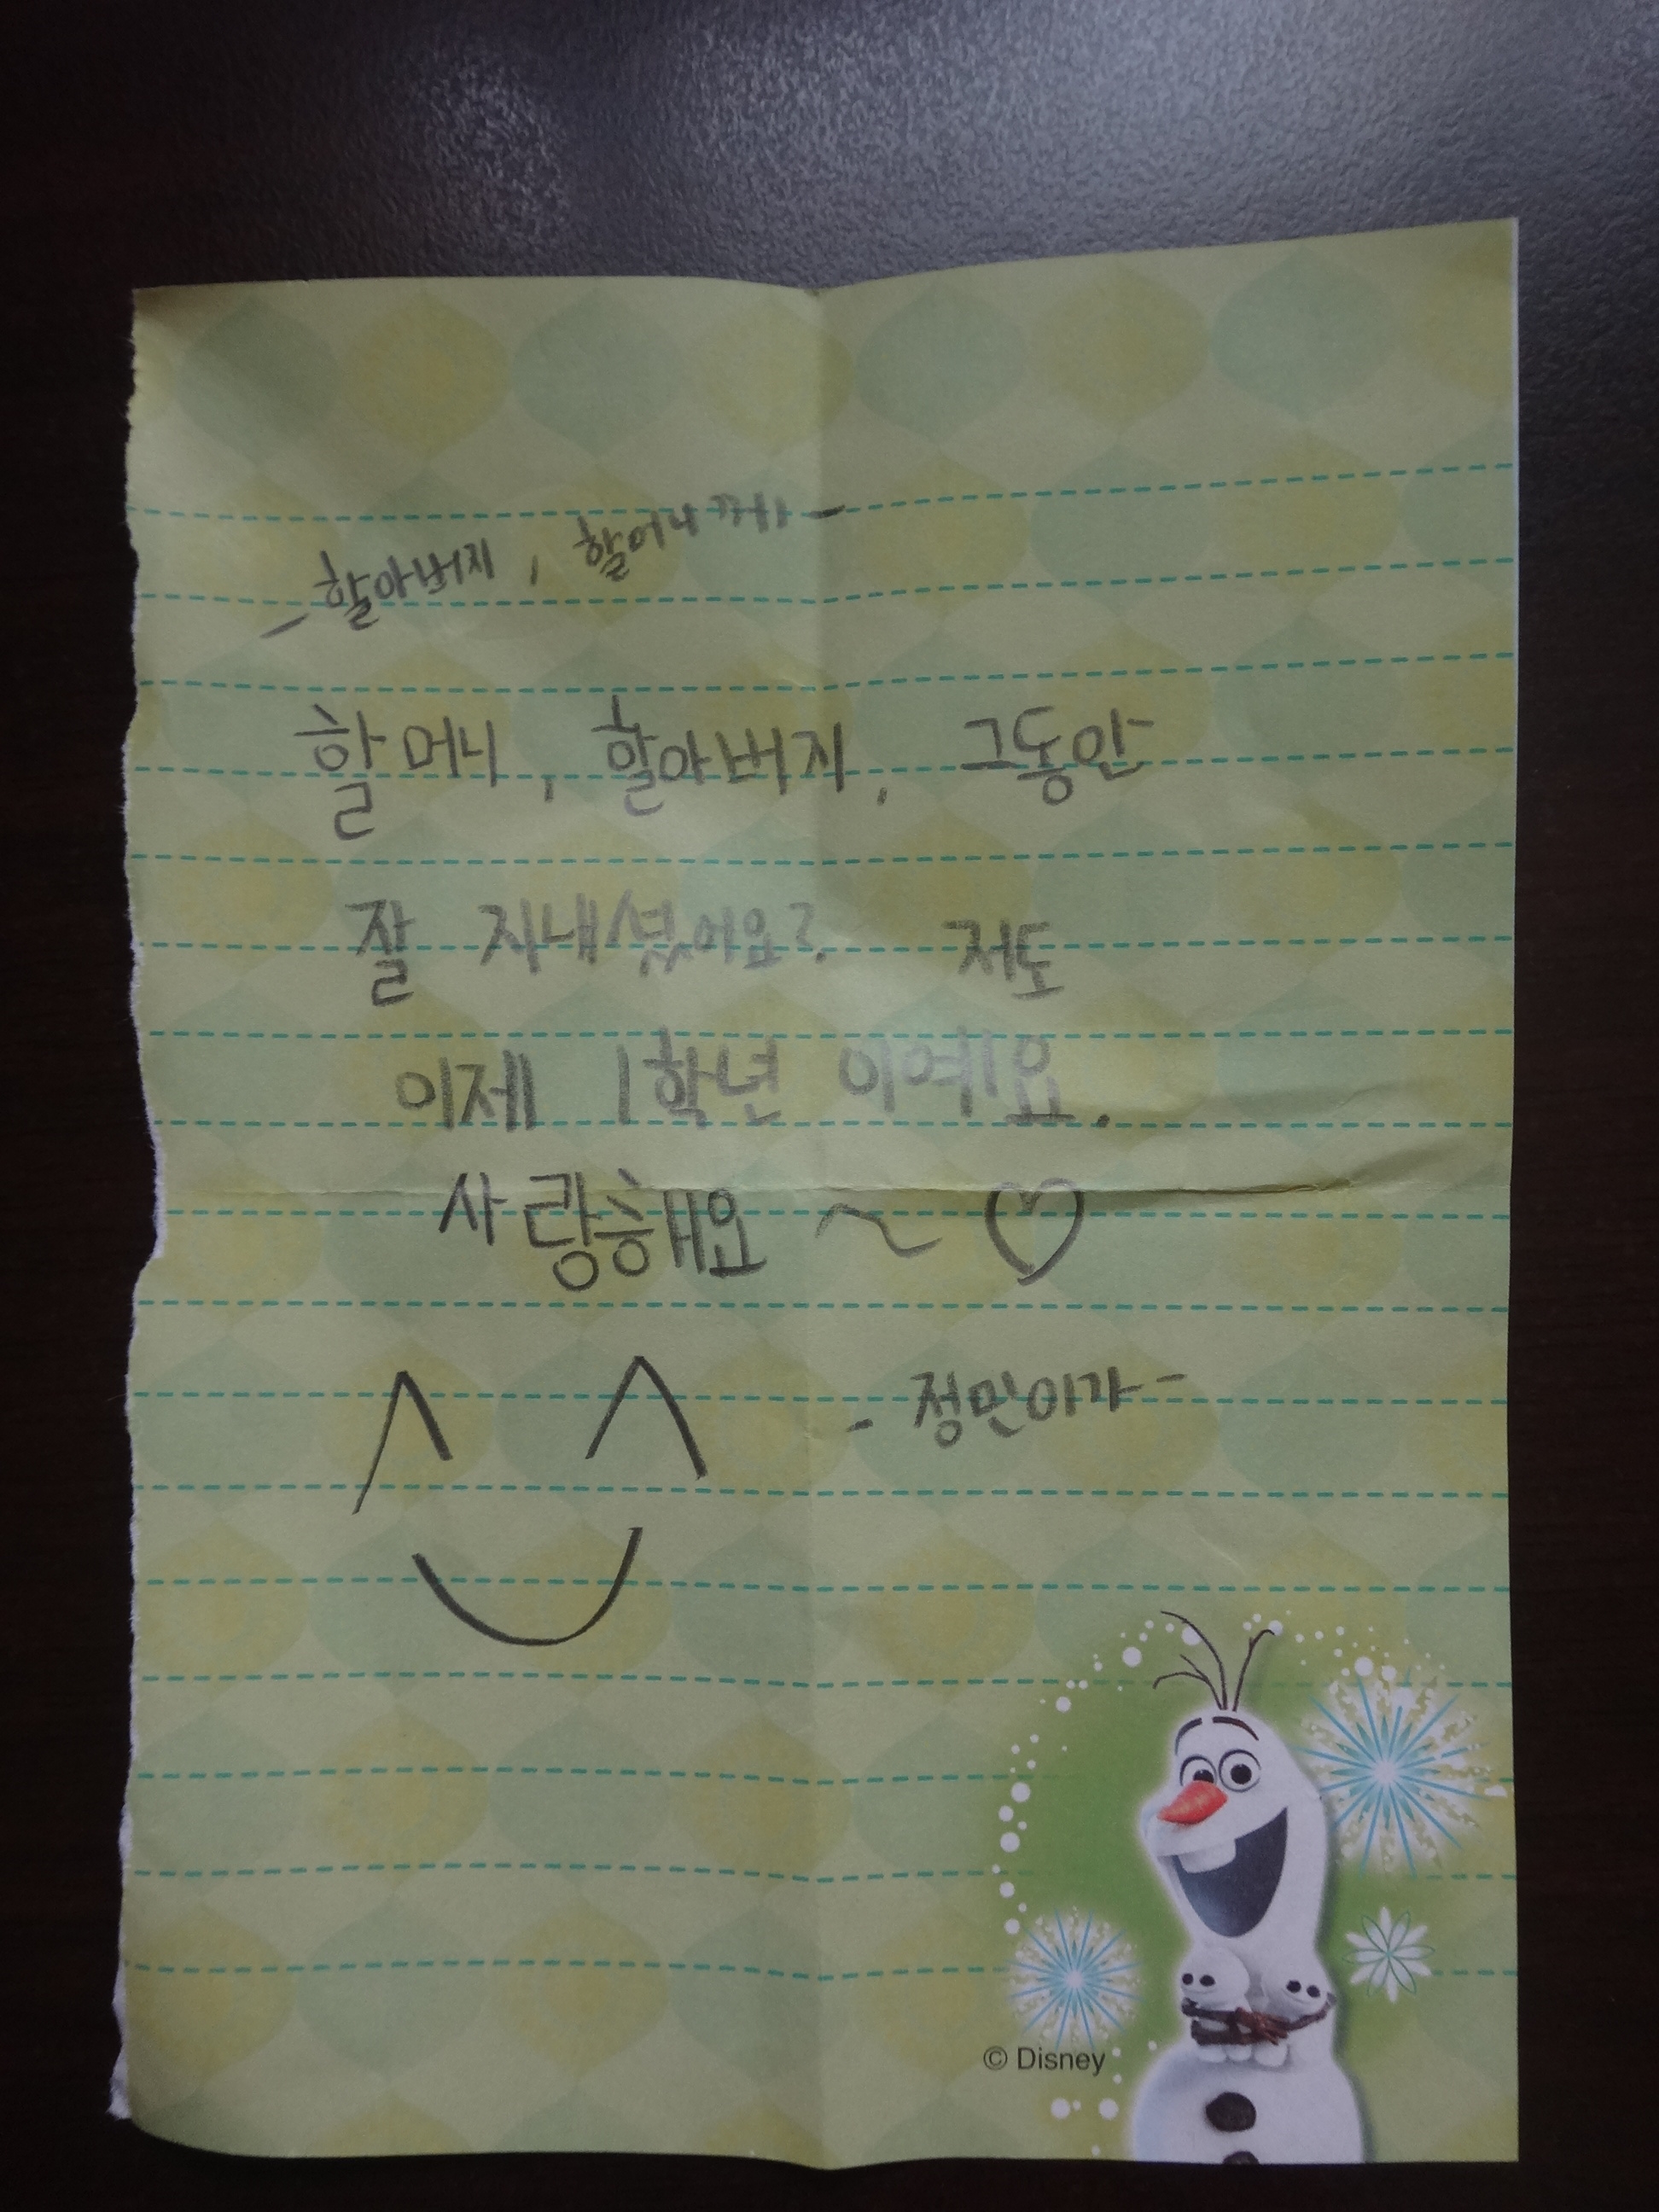 - 할아버지, 할머니께 -
할머니, 할아버지, 그동안
잘 지내셨어요? 저도
이제 1학년 이예요.
사랑해요 ~ ♡
- 정민이가 -
© Disney